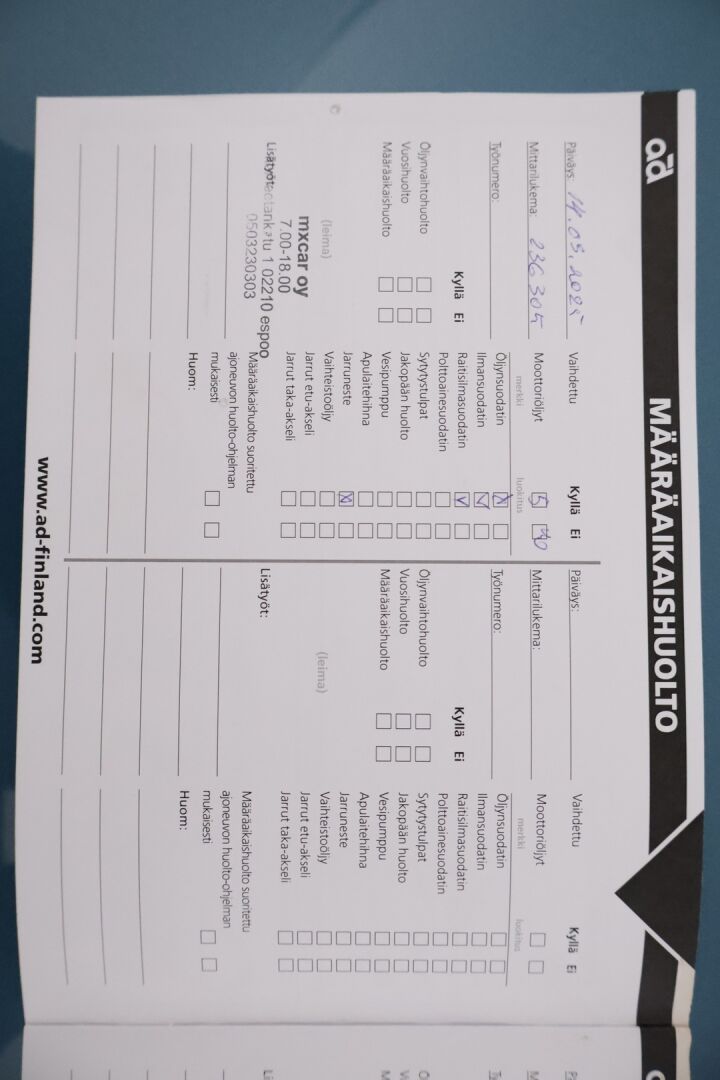 ad
MÄÄRÄAIKAISHUOLTO
Päiväys: 14.05.2025
Mittarilukema: 236 305
Työnumero:
Kyllä Ei
Öljynvaihtohuolto
Vuosihuolto
Määräaikaishuolto
(leima)
mxcar oy
7.00-18.00
1 02210 espoo
0503230303
Lisätyöt:
Vaihdettu
Kyllä Ei
Moottoriöljyt 5 40
merkki
luokitus
Öljynsuodatin
Ilmansuodatin
Raitisilmasuodatin
Polttoainesuodatin
Sytytystulpat
Jakopään huolto
Vesipumppu
Apulaitehihna
Jarruneste
Vaihteistoöljy
Jarrut etu-akseli
Jarrut taka-akseli
Määräaikaishuolto suoritettu
ajoneuvon huolto-ohjelman
mukaisesti
Huom:
Päiväys:
Mittarilukema:
Työnumero:
Kyllä Ei
Öljynvaihtohuolto
Vuosihuolto
Määräaikaishuolto
(leima)
Lisätyöt:
Vaihdettu
Kyllä Ei
Moottoriöljyt
merkki
luokitus
Öljynsuodatin
Ilmansuodatin
Raitisilmasuodatin
Polttoainesuodatin
Sytytystulpat
Jakopään huolto
Vesipumppu
Apulaitehihna
Jarruneste
Vaihteistoöljy
Jarrut etu-akseli
Jarrut taka-akseli
Määräaikaishuolto suoritettu
ajoneuvon huolto-ohjelman
mukaisesti
Huom:
www.ad-finland.com